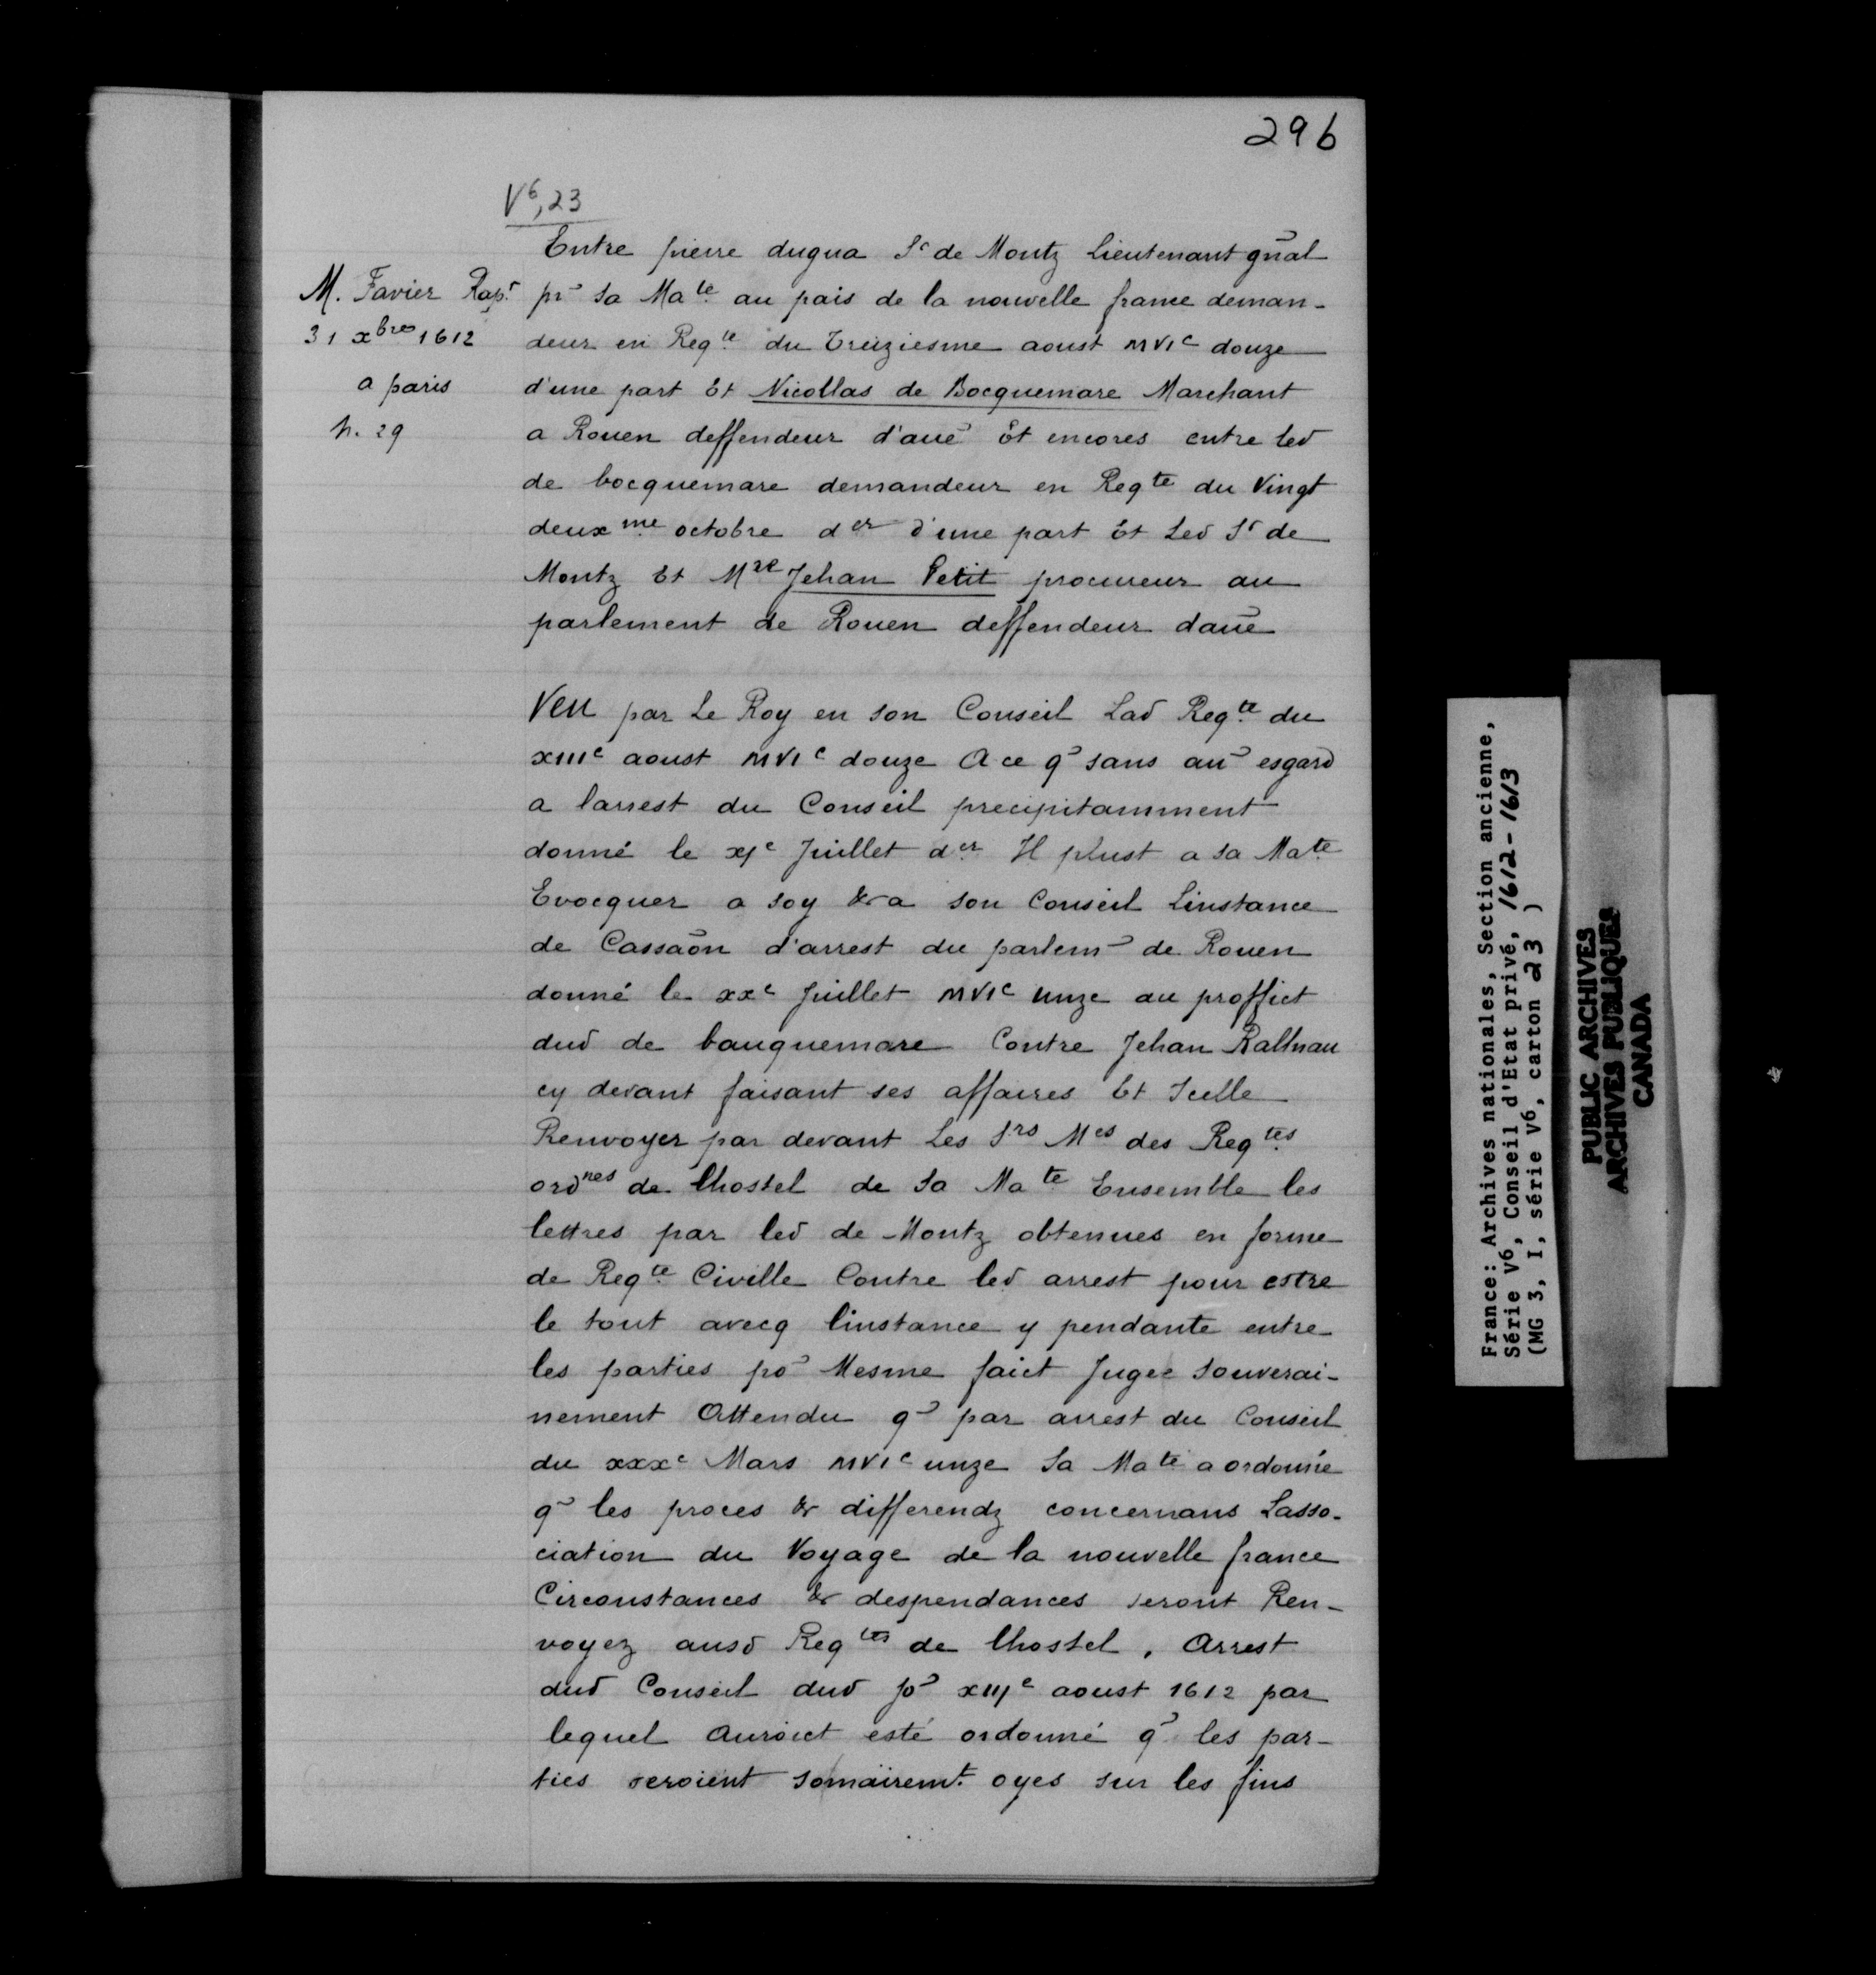 296
V⁶,23
Entre pierre dugua Sʳ de Montz Lieutenant gñal
M. Favier Rapʳ
31 xbre 1612
a paris
n. 29
pʳ Sa Maᵗᵉ au pais de la nouvelle france deman-
deur en Reqᵗᵉ du Treiziesme aoust MVIᶜ douze
d'une part Et Nicollas de Bocquemare Marchant
a Rouen deffendeur d'aue Et encores entre led
de bocquemare demandeur en Reqᵗᵉ du Vingt
deuxᵐᵉ octobre dᵉʳ d'une part Et Led Sʳ de
Montz Et Mʳᵉ Jehan Petit procureur au
parlement de Rouen deffendeur daue
Veu par Le Roy en son Conseil Lad Reqᵗᵉ du
XIIIᵉ aoust MVIᶜ douze A ce q̃ sans au͂ esgard
a larrest du Conseil precipitamment
donné le xjᵉ Juillet dᵉʳ Il plust a sa Maᵗᵉ
Evocquer a soy & a son Conseil Linstance
de Cassaõn d'arrest du parlem̃ de Rouen
donné le xxᵉ Juillet MVIᶜ unze au proffict
dud de bauquemare Contre Jehan Ralluau
cy devant faisant ses affaires Et Icelle
Renvoyer par devant Les Sʳˢ Mᵉˢ des Reqᵗᵉˢ
ordⁿᵉˢ de lhostel de Sa Maᵗᵉ Ensemble les
lettres par led de Montz obtenues en forme
de Reqᵗᵉ Civille Contre led arrest pour estre
le tout avecq linstance y pendante entre
les parties po͂ Mesme faict Jugée souverai-
nement Attendu q̃ par arrest du Conseil
du xxxᵉ Mars MVIᶜ unze Sa Maᵗᵉ a ordonné
q̃ les proces & differendz concernans Lasso-
ciation du Voyage de la nouvelle france
Circonstances & despendances seront Ren-
voyez ausd Reqᵗᵉˢ de lhostel, Arrest
dud Conseil dud jo͂ xiijᵉ aoust 1612 par
lequel Auroict esté ordonné q̃ les par-
ties seroient somairemᵗ. oyes sur les fins
France: Archives nationales, Section ancienne,
Série V6, Conseil d'Etat privé, 1612-1613
(MG 3, I, série V6, carton 23 )
PUBLIC ARCHIVES
ARCHIVES PUBLIQUES
CANADA